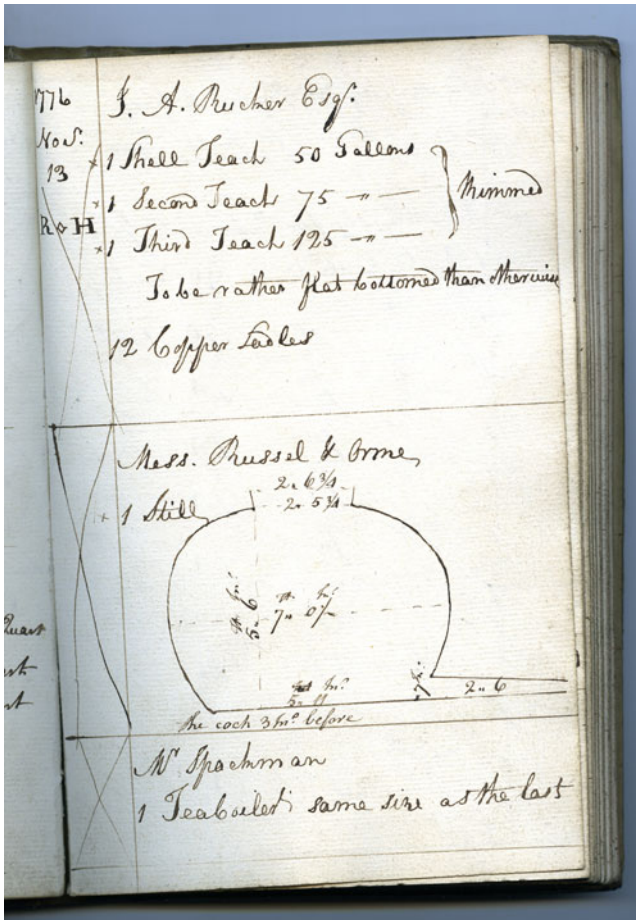 1776
Nov.
13
R & H
J. A. Rucker Esqr.
1 Small Teach 50 Gallons
1 Second Teach 75 -"- —
1 Third Teach 125 -"- —
Rimmed
To be rather flat bottomed than otherwise
12 Copper Ladles
Mess. Russel & Orme
1 Still
2„ 6 3/4
2„ 5 3/4
ft In.
5„ 6
ft In.
7„ 0
In.
2„ 6
the cock 3 Ins. before
Mr Spackman
1 Teaboiler same size as the last
Quart